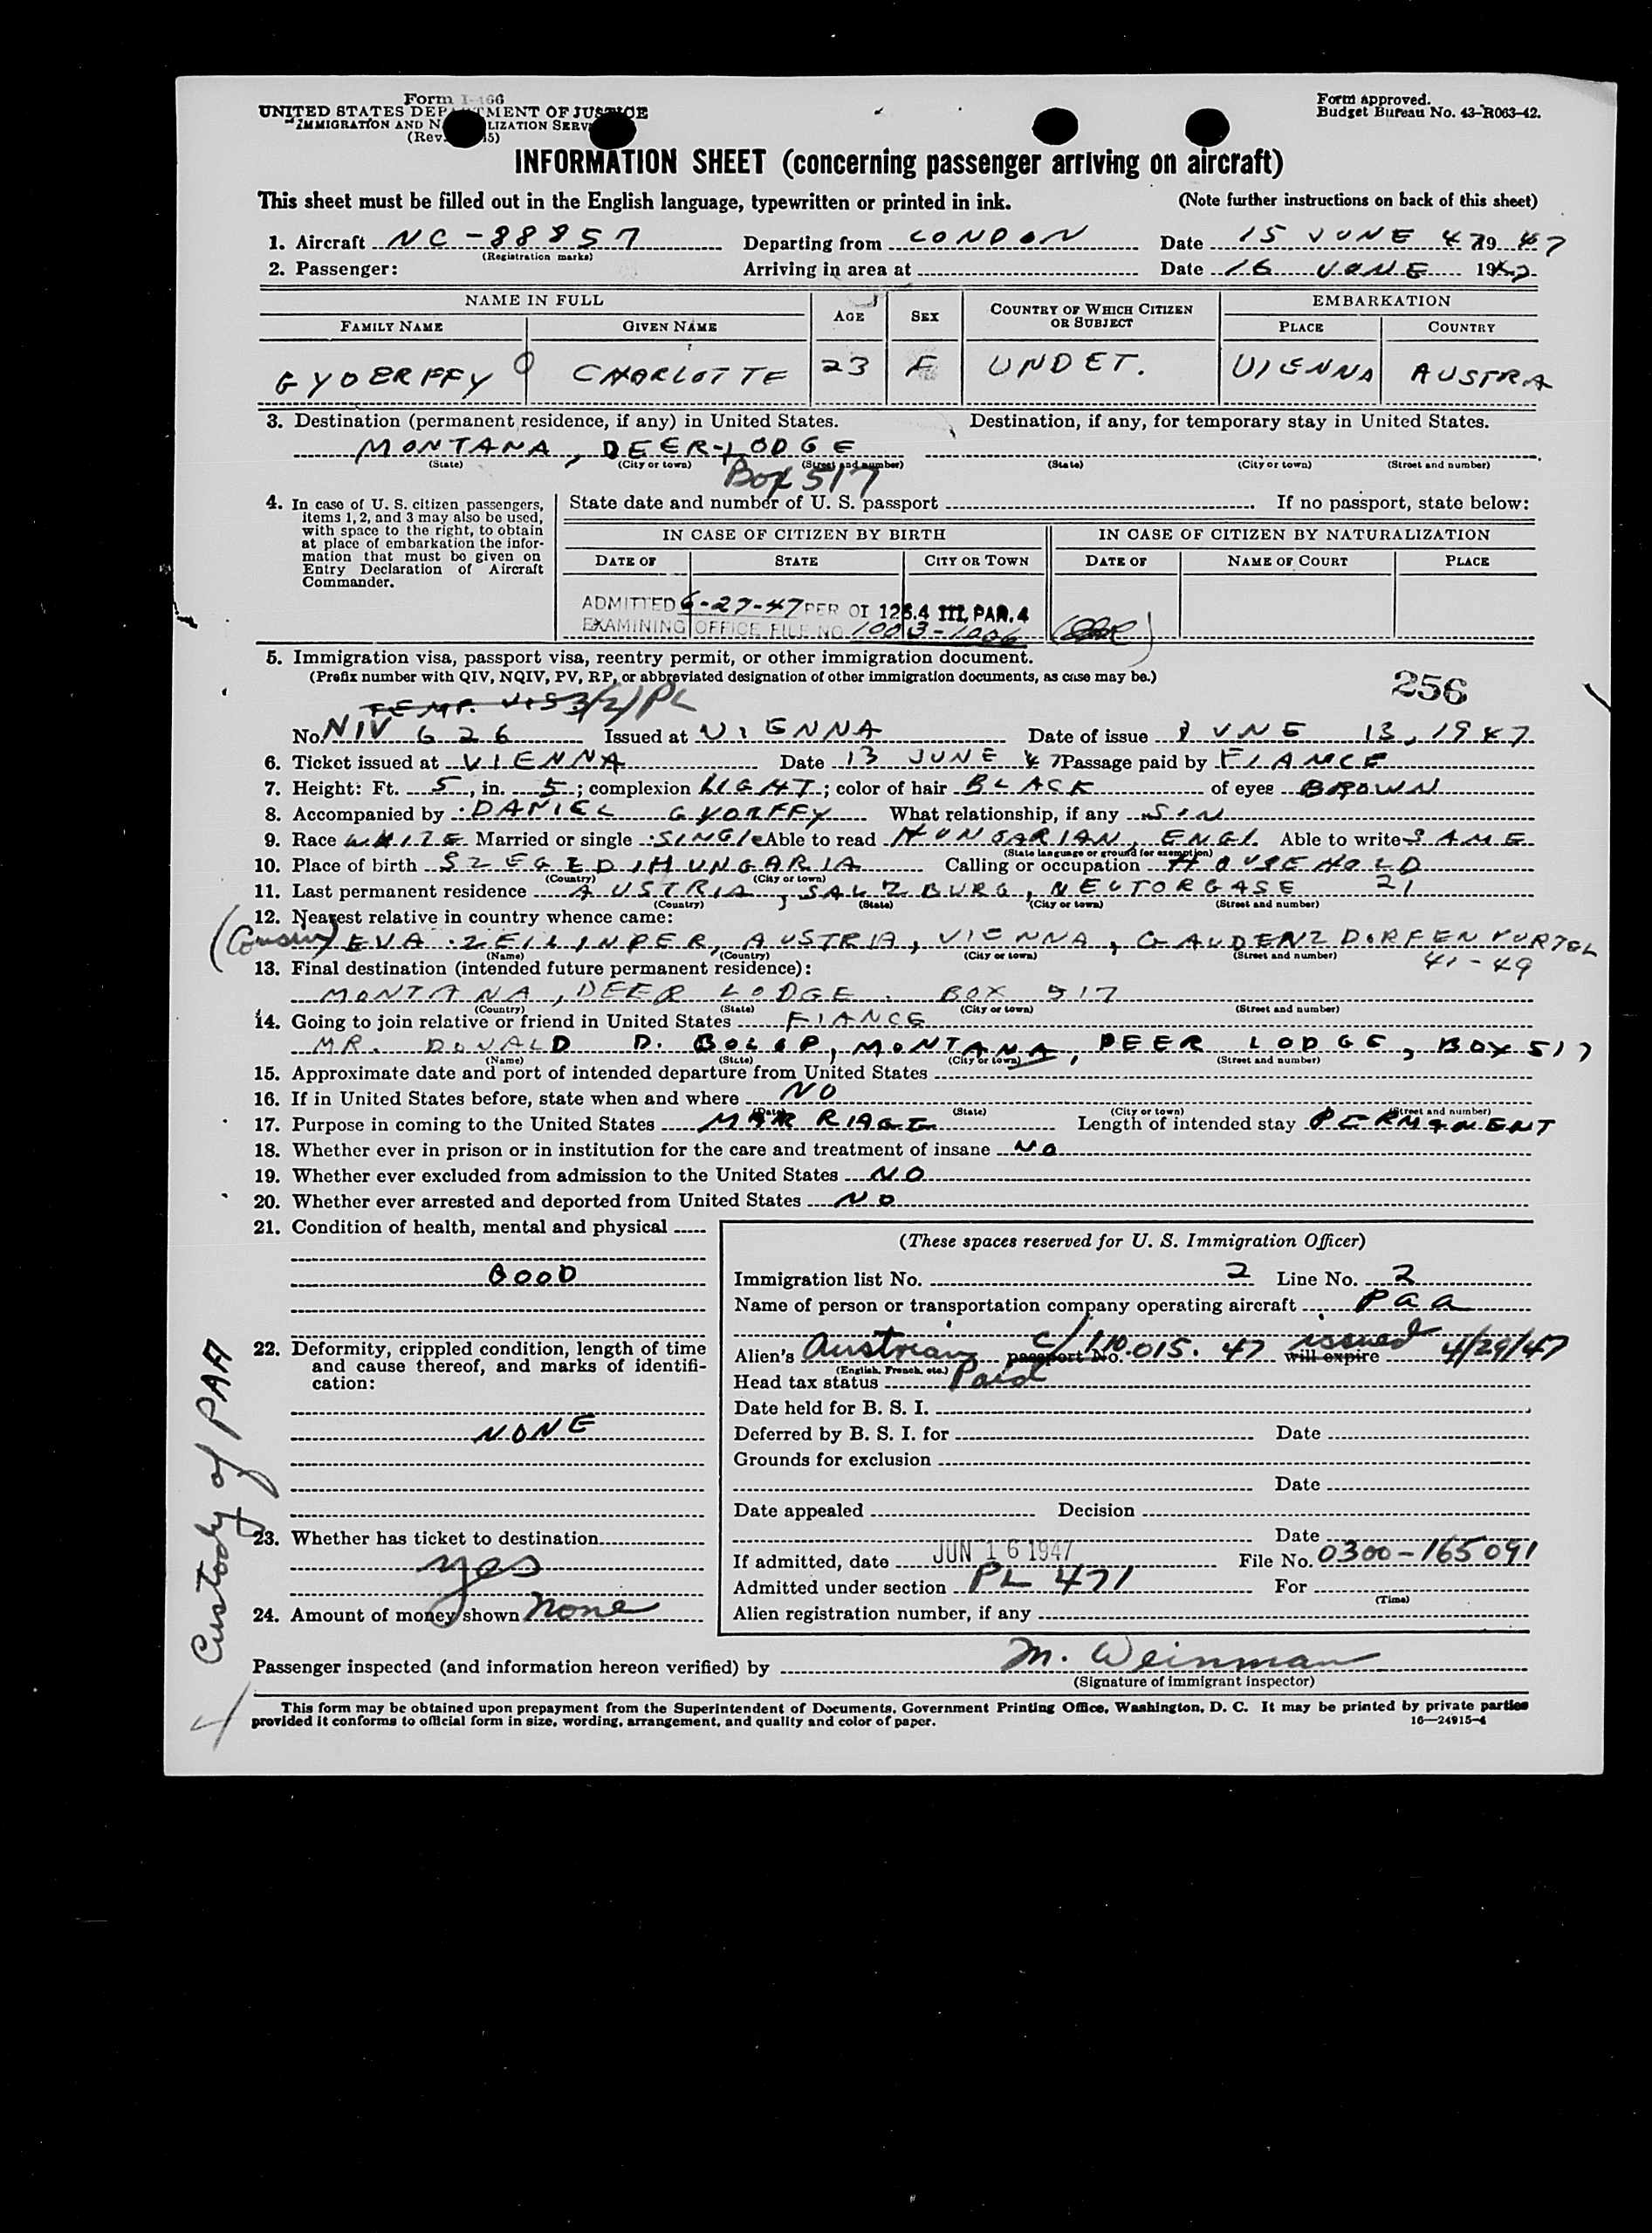 Form I-466
UNITED STATES DEP TMENT OF JUSTICE
IMMIGRATION AND N LIZATION SERV
(Rev. 5)
Form approved.
Budget Bureau No. 43-R063-42.
INFORMATION SHEET (concerning passenger arriving on aircraft)
This sheet must be filled out in the English language, typewritten or printed in ink. (Note further instructions on back of this sheet)
1. Aircraft NC-88857 Departing from LONDON Date 15 JUNE 47 19 47
(Registration marks)
2. Passenger: Arriving in area at Date 16 JUNE 1947
NAME IN FULL AGE SEX COUNTRY OF WHICH CITIZEN OR SUBJECT EMBARKATION
FAMILY NAME GIVEN NAME PLACE COUNTRY
GYOERFFY CHARLOTTE 23 F UNDET. VIENNA AUSTRA
3. Destination (permanent residence, if any) in United States. Destination, if any, for temporary stay in United States.
MONTANA, DEER-LODGE
(State) (City or town) (Street and number) (State) (City or town) (Street and number)
Box 517
4. In case of U. S. citizen passengers, items 1, 2, and 3 may also be used, with space to the right, to obtain at place of embarkation the information that must be given on Entry Declaration of Aircraft Commander.
State date and number of U. S. passport If no passport, state below:
IN CASE OF CITIZEN BY BIRTH IN CASE OF CITIZEN BY NATURALIZATION
DATE OF STATE CITY OR TOWN DATE OF NAME OF COURT PLACE
ADMITTED 6-27-47 PER OI 126.4 III, PAR. 4
EXAMINING OFFICE FILE NO. 1003-1006
5. Immigration visa, passport visa, reentry permit, or other immigration document.
(Prefix number with QIV, NQIV, PV, RP, or abbreviated designation of other immigration documents, as case may be.)
256
TEMP. VIS 3(2) PL
No. NIV 626 Issued at VIENNA Date of issue JUNE 13, 1947
6. Ticket issued at VIENNA Date 13 JUNE 47 Passage paid by FIANCE
7. Height: Ft. 5, in. 5; complexion LIGHT; color of hair BLACK of eyes BROWN
8. Accompanied by DANIEL GYORFFY What relationship, if any SON
9. Race WHITE Married or single SINGLE Able to read HUNGARIAN, ENGL. Able to write SAME
(State language or ground for exemption)
10. Place of birth SZEGED, HUNGARIA Calling or occupation HOUSEHOLD
(Country) (City or town)
11. Last permanent residence AUSTRIA, SALZBURG, NEUTORGASE 21
(Country) (State) (City or town) (Street and number)
12. Nearest relative in country whence came:
(Cousin) EVA ZEILINPER, AUSTRIA, VIENNA, GAUDENZDORFEN VURTEL
(Name) (Country) (City or town) (Street and number)
41-49
13. Final destination (intended future permanent residence):
MONTANA, DEER LODGE. BOX 517
(Country) (State) (City or town) (Street and number)
14. Going to join relative or friend in United States FIANCE
MR. DONALD D. , MONTANA, DEER LODGE, BOX 517
(Name) (State) (City or town) (Street and number)
15. Approximate date and port of intended departure from United States
16. If in United States before, state when and where NO
(Date) (State) (City or town) (Street and number)
17. Purpose in coming to the United States MARRIAGE Length of intended stay PERMANENT
18. Whether ever in prison or in institution for the care and treatment of insane NO
19. Whether ever excluded from admission to the United States NO
20. Whether ever arrested and deported from United States NO
21. Condition of health, mental and physical
GOOD
22. Deformity, crippled condition, length of time and cause thereof, and marks of identification:
NONE
23. Whether has ticket to destination
yes
24. Amount of money shown none
(These spaces reserved for U. S. Immigration Officer)
Immigration list No. 2 Line No. 2
Name of person or transportation company operating aircraft Paa
Alien's Austrian passport No. c/110.015.47 will expire issued 4/29/47
(English, French, etc.)
Head tax status Paid
Date held for B. S. I.
Deferred by B. S. I. for Date
Grounds for exclusion
Date
Date appealed Decision
Date
If admitted, date JUN 16 1947 File No. 0300-165091
Admitted under section PL 471 For
(Time)
Alien registration number, if any
Custody of PAA
Passenger inspected (and information hereon verified) by M. Weinman
(Signature of immigrant inspector)
This form may be obtained upon prepayment from the Superintendent of Documents, Government Printing Office, Washington, D. C. It may be printed by private parties
provided it conforms to official form in size, wording, arrangement, and quality and color of paper. 16—24915-4